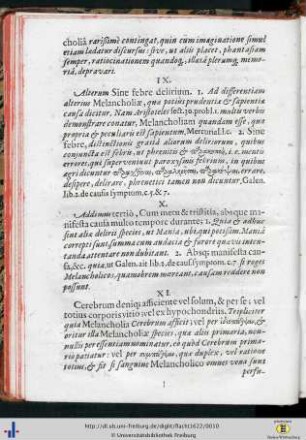 choliâ rarissimè contingat, quin cum imaginatione simul
etiam lædatur discursus: sive, ut aliis placet, phantasiam
semper, ratiocinationem quandoq;, illæsâ plerumq; memo-
riâ, depravari.
IX.
Alterum Sine febre delirium. 1. Ad differentiam
alterius Melancholiæ, quæ potiùs prudentiæ & sapientiæ
causa dicitur. Nam Aristoteles sect. 30. probl. 1. multis verbis
demonstrare conatur, Melancholiam quandam esse, quæ
propria & peculiaris est sapientum, Mercurial. l. c. 2. Sine
febre, distinctionis gratiâ aliarum deliriorum, quibus
conjuncta est febris, ut phrenitis & i.e. mentis
errores, qui superveniunt paroxysmis febrium, in quibus
ægri dicuntur errare,
desipere, delirare, phrenetici tamen non dicuntur, Galen.
lib. 2. de causis symptom. c. 5. & 7.
X.
Addimus tertiò, Cum metu & tristitia, absque ma-
nifesta causa multo tempore durante; 1. Quia ab his di-
stinctæ aliæ deliriis species, ut Mania, ubi, qui pessimâ Maniâ
correpti sunt, summa cum audacia & furore quævis inten-
tanda, attentare non dubitant. 2. Absq; manifesta cau-
sa, &c. quia, ut Galen. ait lib. 2. de caus. symptom. c. 7. si roges
Melancholicos, quamobrem mœreant, causam reddere non
possunt.
XI.
Cerebrum deniq; afficiente vel solum, & per se; vel
totius corporis vitio; vel ex hypochondriis. Tripliciter
quia Melancholia Cerebrum afficit; vel per &
oritur illa Melancholiæ species, quæ aliis primaria, non-
nullis per essentiam nominatur, eò quod Cerebrum prima-
riò patiatur: vel per quæ duplex, vel ratione
totius, & fit si sanguine Melancholico omnes venæ sunt
http://dl.ub.uni-freiburg.de/diglit/flacht1622/0010
© Universitätsbibliothek Freiburg